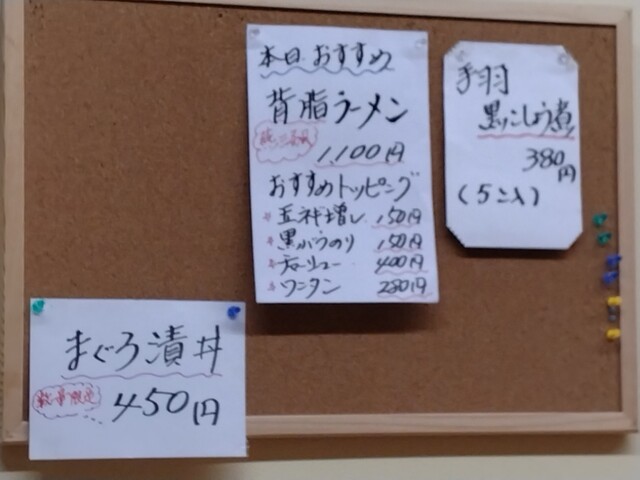 本日おすすめ
背脂ラーメン
1,100円
おすすめトッピング
玉ネギ増し 150円
黒ばらのり 150円
チャーシュー 400円
ワンタン 280円
手羽
黒こしょう煮
380円
(5コ入)
まぐろ漬丼
数量限定
450円